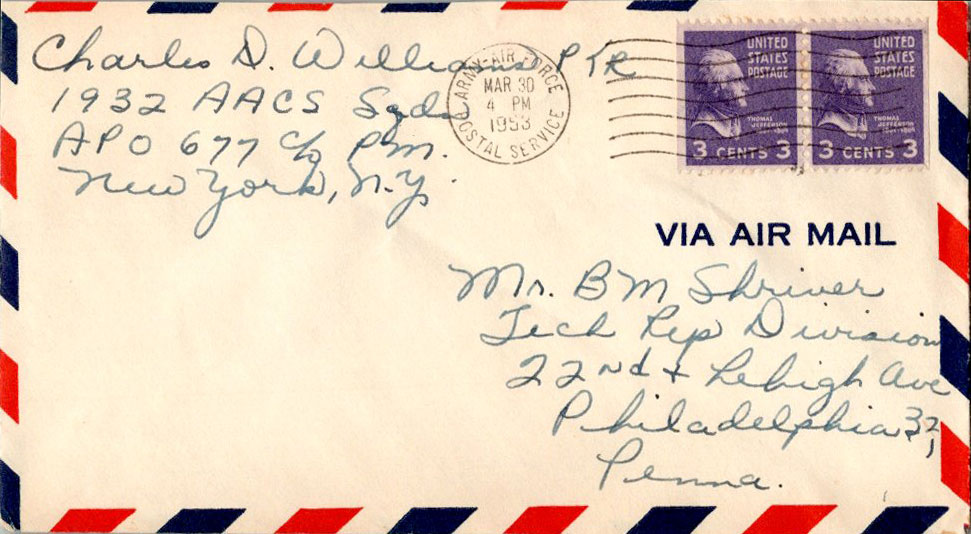 Charles D. Williams PTR
1932 AACS Sqdn
APO 677 c/o P.M.
New York, N.Y.
ARMY-AIR FORCE
MAR 30
4 PM
1953
POSTAL SERVICE
UNITED
STATES
POSTAGE
THOMAS
JEFFERSON
3 CENTS 3
UNITED
STATES
POSTAGE
THOMAS
JEFFERSON
3 CENTS 3
VIA AIR MAIL
Mr. B M Shriver
Tech Rep Division
22nd & Lehigh Ave
Philadelphia 32,
Penna.